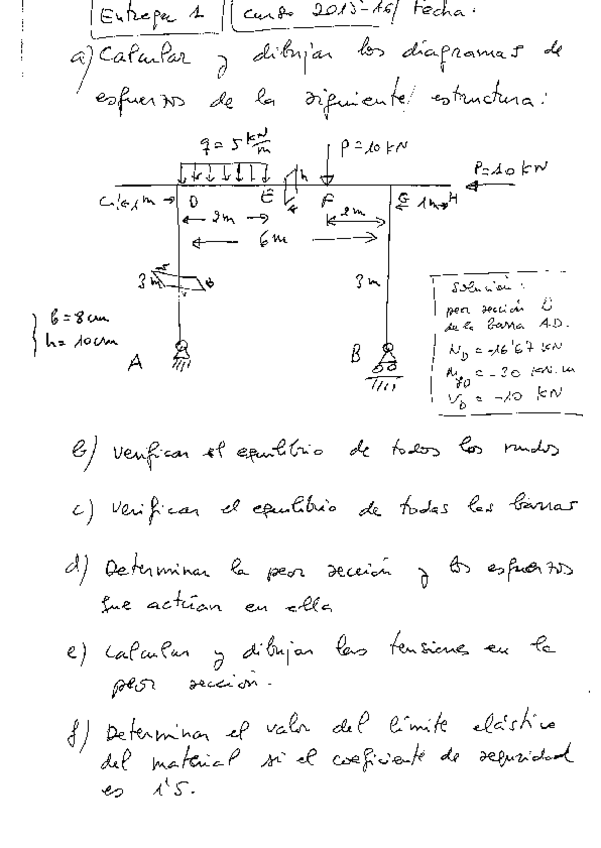 Entrega 1 curso 2015-16 Fecha:
a) Calcular y dibujar los diagramas de
esfuerzos de la siguiente estructura:
q = 5 kN/m
P = 10 kN
P = 10 kN
1m D E h F G 1m H
2m 2m
6m
3m b 3m
b = 8 cm
h = 10 cm
A B
Solución:
peor sección D
de la barra AD.
N_D = -16'67 kN
M_yD = -30 kN.m
V_D = -10 kN
b) Verificar el equilibrio de todos los nudos
c) Verificar el equilibrio de todas las barras
d) Determinar la peor sección y los esfuerzos
que actúan en ella
e) Calcular y dibujar las tensiones en la
peor sección.
f) Determinar el valor del límite elástico
del material si el coeficiente de seguridad
es 1'5.